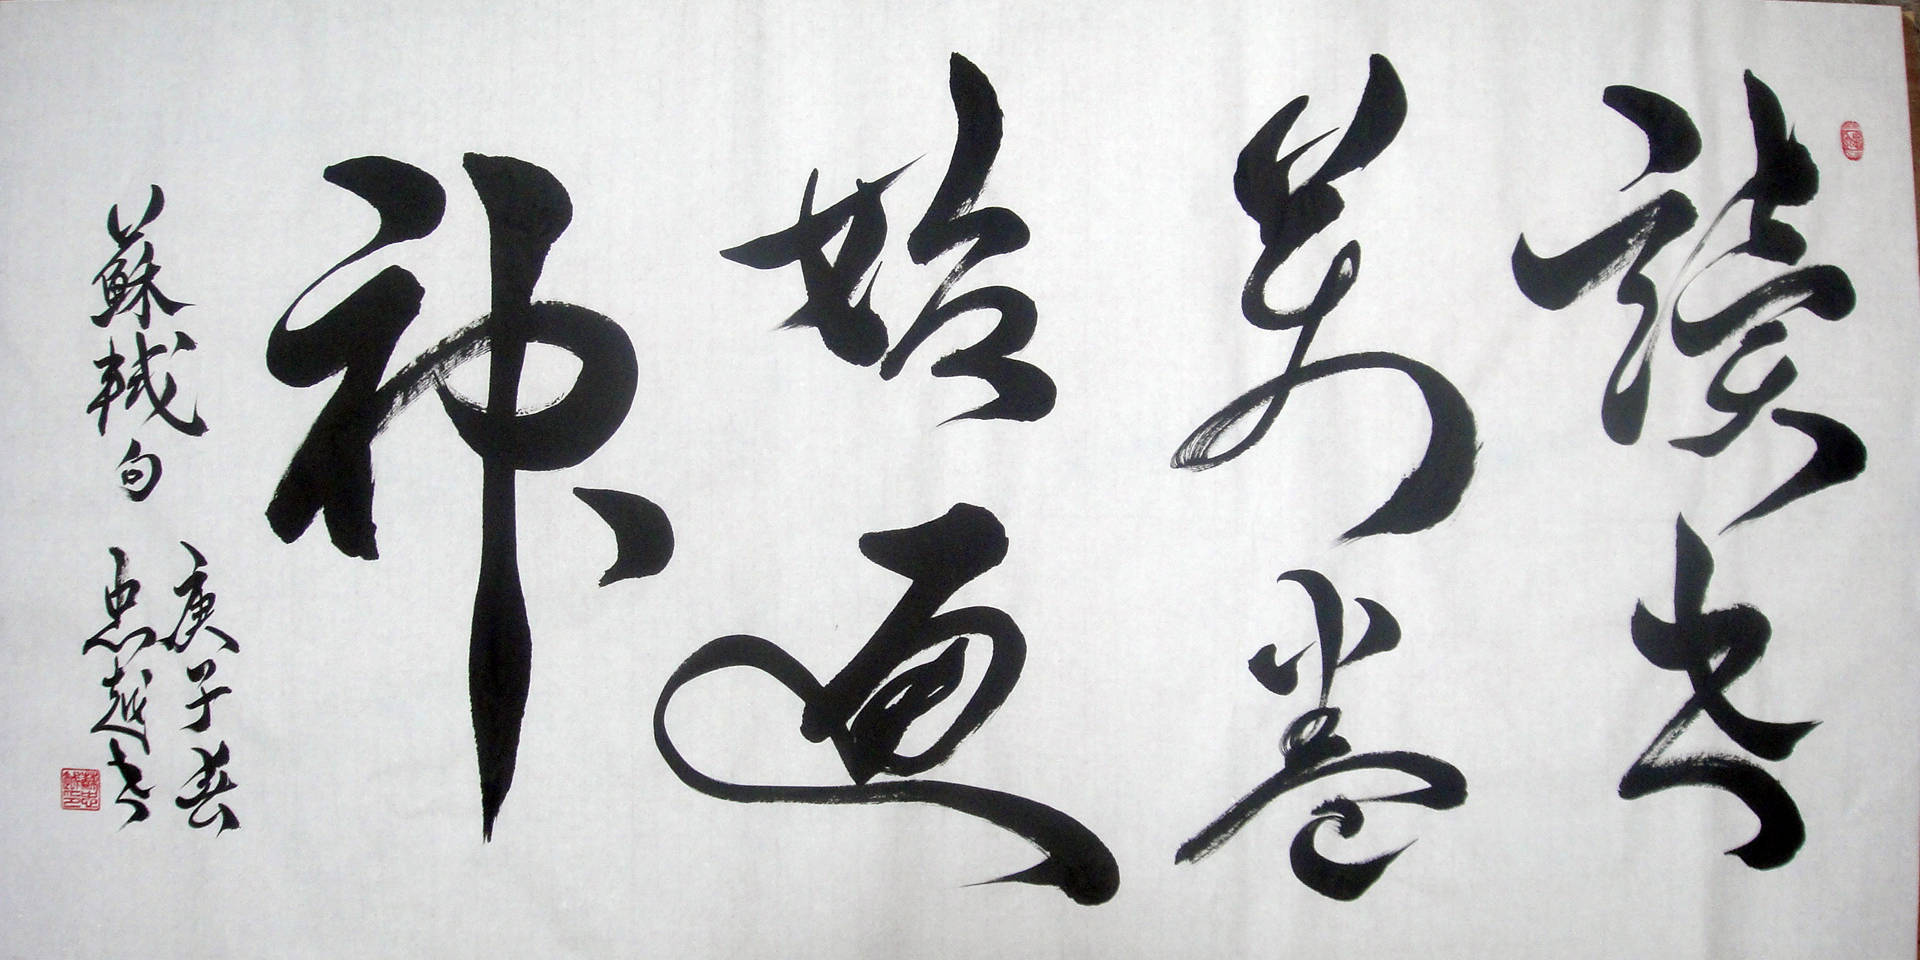 讀書
萬卷
始通
神
蘇軾句
庚子春
忠越書